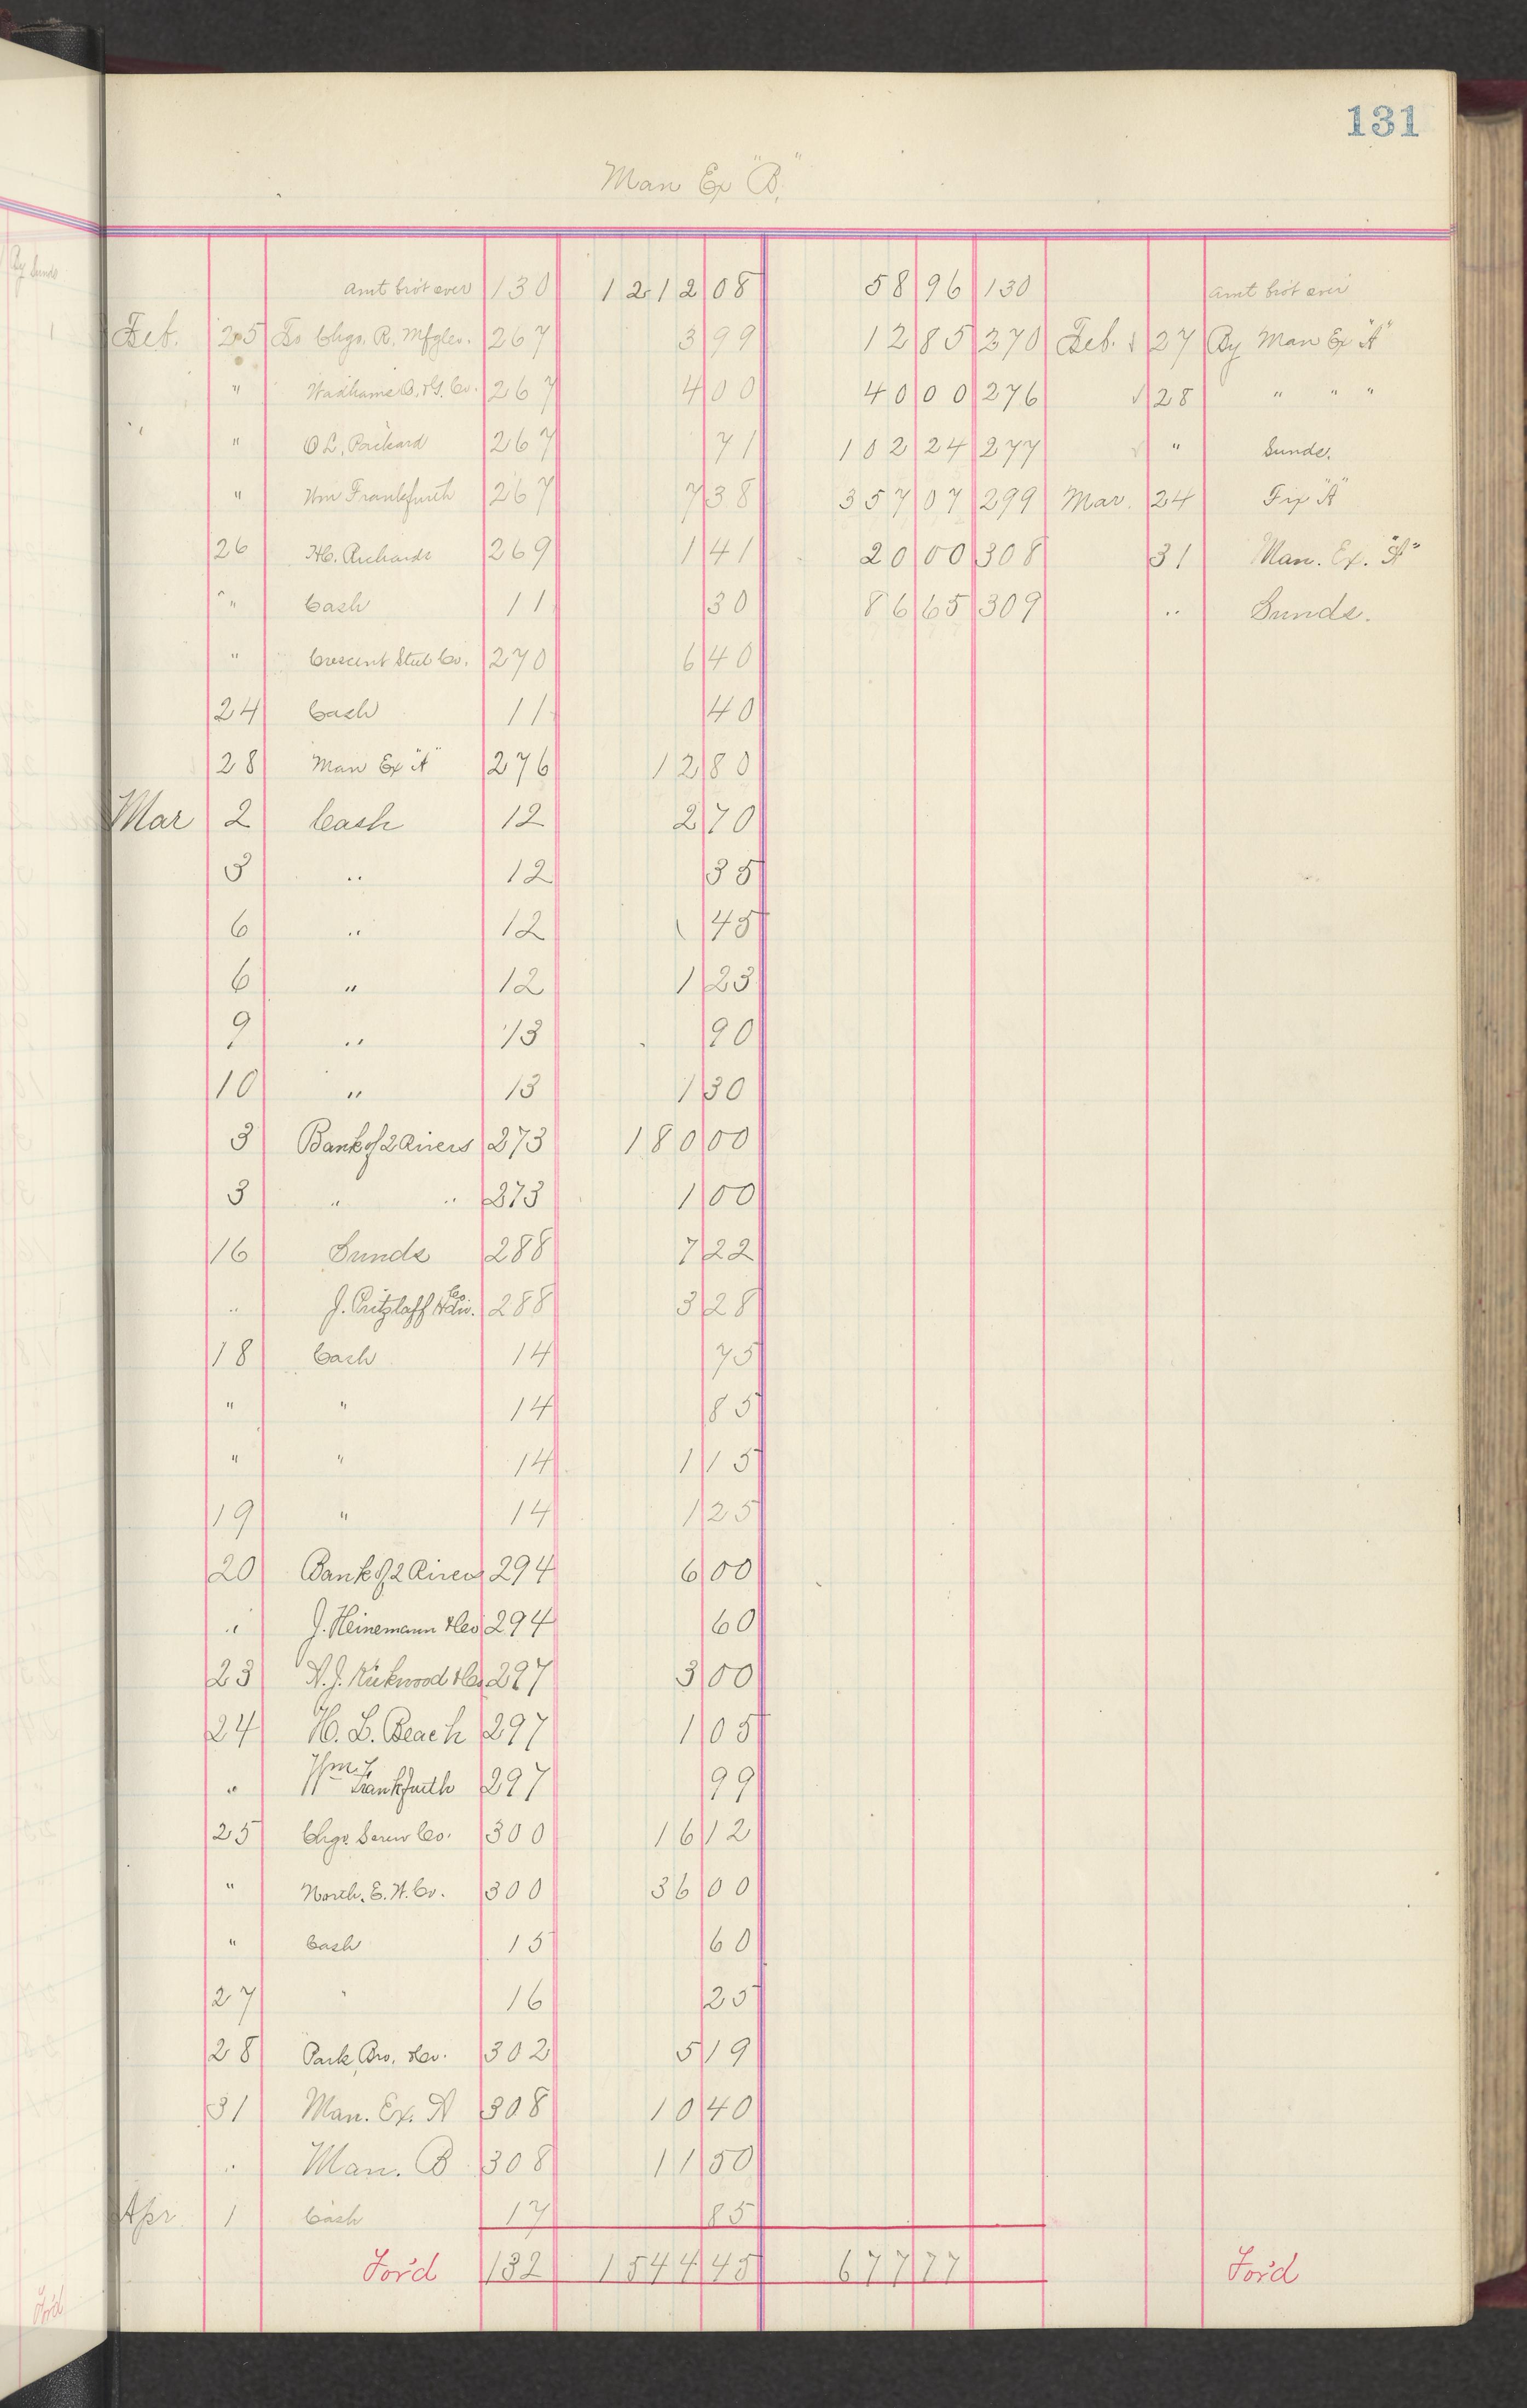 131
Man Ex "B"
Amt bro't over 130 1212 08 58 96 130 Amt bro't over
Feb. 25 To Chgo. R. Mfg Co. 267 3 99 12 85 270 Feb. 27 By Man Ex "A"
" Wadhams O. & G. Co. 267 4 00 40 00 276 28 " " "
" O L. Packard 267 71 102 24 277 " Sunds.
" Wm Frankfurth 267 7 38 357 07 299 Mar. 24 Fix "A"
26 H. Richards 269 1 41 20 00 308 31 Man. Ex. "A"
" Cash 11 30 86 65 309 " Sunds.
" Crescent Steel Co. 270 6 40
24 Cash 11 40
28 Man Ex "A" 276 12 80
Mar 2 Cash 12 2 70
3 " 12 35
6 " 12 45
6 " 12 1 23
9 " 13 90
10 " 13 1 30
3 Bank of 2 Rivers 273 180 00
3 " " 273 1 00
16 Sunds 288 7 22
" J. Pritzlaff Hdw. Co 288 3 28
18 Cash 14 75
" " 14 85
" " 14 1 15
19 " 14 1 25
20 Bank of 2 Rivers 294 6 00
" J. Heinemann & Co 294 60
23 A. J. Kirkwood & Co 297 3 00
24 H. L. Beach 297 1 05
" Wm Frankfurth 297 99
25 Chgo. Screw Co. 300 16 12
" North. E. W. Co. 300 36 00
" Cash 15 60
27 " 16 25
28 Park, Bro. & Co. 302 5 19
31 Man. Ex. A 308 10 40
" Man. B 308 11 50
Apr 1 Cash 17 85
For'd 132 1544 45 677 77 For'd